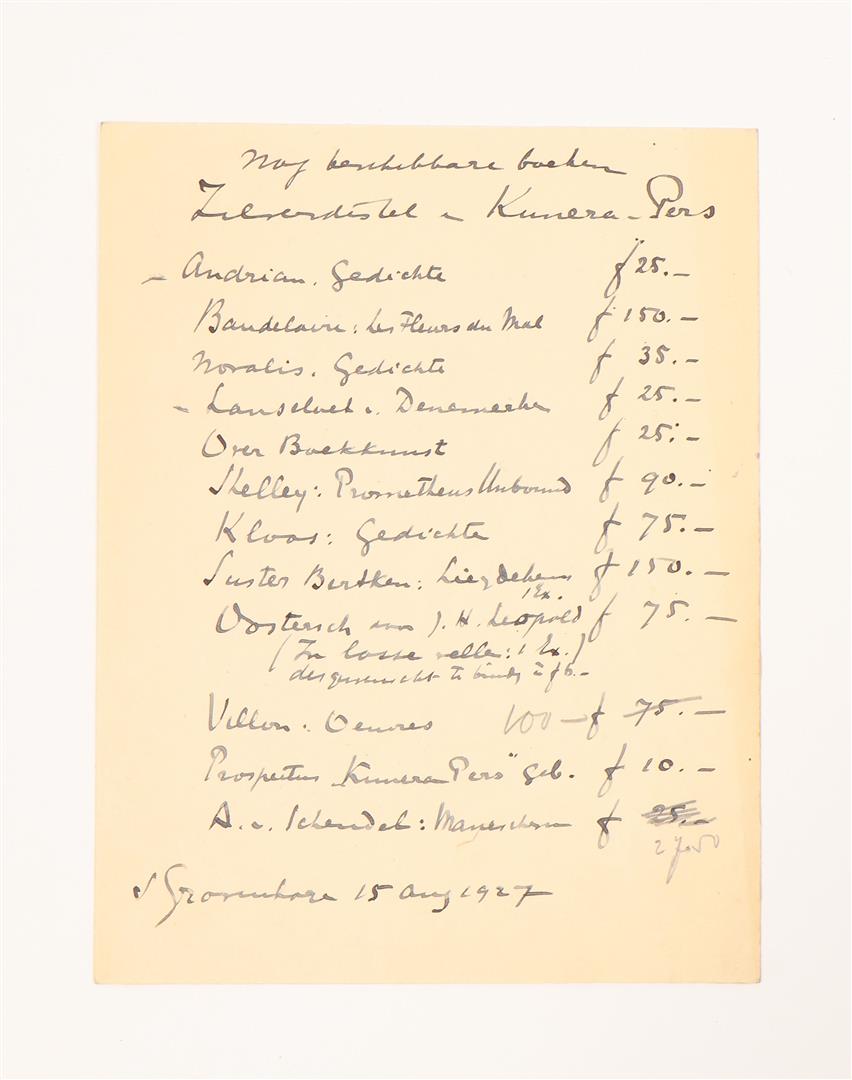 Nog beschikbare boeken
Zilverdistel en Kunera-Pers
- Andrian. Gedichte f 25.-
Baudelaire: Les Fleurs du Mal f 150.-
Novalis. Gedichte f 35.-
- Lanseloet v. Denemerken f 25.-
Over Boekkunst f 25.-
Shelley: Prometheus Unbound f 90.-
Kloos: Gedichte f 75.-
Suster Bertken: Liegdekens f 150.-
1 Ex.
Oostersch van J. H. Leopold f 75.-
(In losse vellen: 1 Ex.)
desgewenscht te binden à f 6.-
Villon. Oeuvres 100 - f 75.-
Prospectus „Kunera Pers" geb. f 10.-
A. v. Schendel: Maneschijn f 25.-
27.50
's Gravenhage 15 Aug 1927